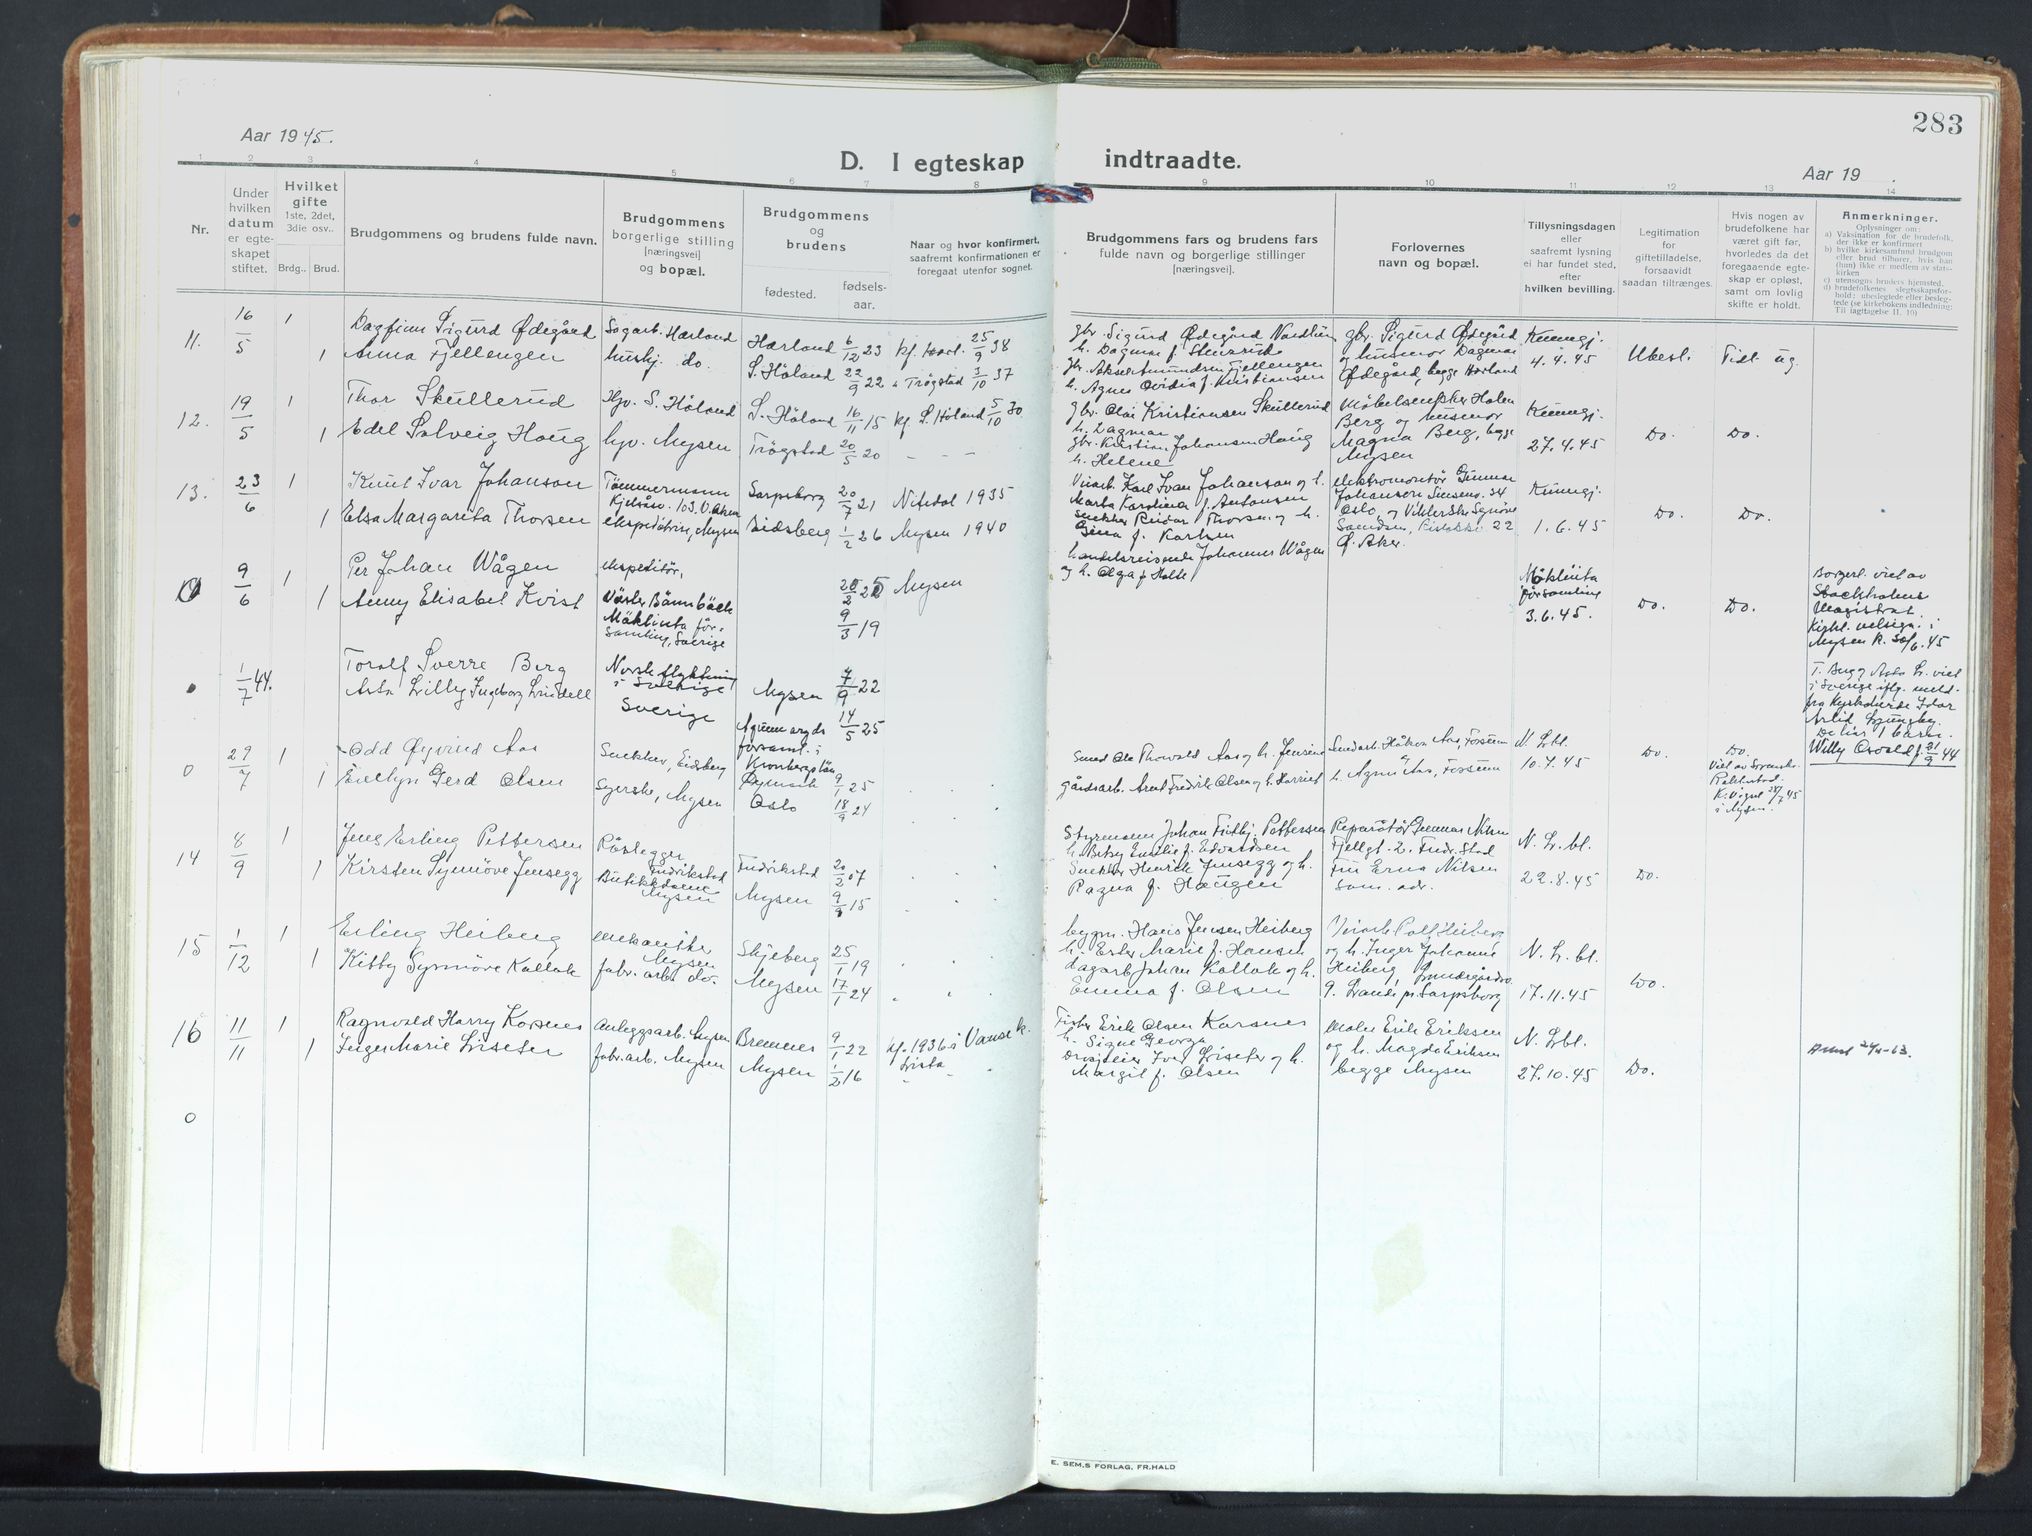 283
Aar 1945.
D. I egteskap indtraadte.
Aar 19
1 2 3 4 5 6 7 8 9 10 11 12 13 14
Nr.
Under hvilken datum er egte-skapet stiftet.
Hvilket gifte
1ste, 2det, 3die osv..
Brdg.. Brud.
Brudgommens og brudens fulde navn.
Brudgommens borgerlige stilling [næringsvei] og bopæl.
Brudgommens og brudens
fødested.
fødsels-aar.
Naar og hvor konfirmert, saafremt konfirmationen er foregaat utenfor sognet.
Brudgommens fars og brudens fars fulde navn og borgerlige stillinger [næringsvei].
Forlovernes navn og bopæl.
Tillysningsdagen eller saafremt lysning ei har fundet sted, efter hvilken bevilling.
Legitimation for giftetilladelse, forsaavidt saadan tiltrænges.
Hvis nogen av brudefolkene har været gift før, hvorledes da det foregaaende egte-skap er opløst, samt om lovlig skifte er holdt.
Anmerkninger.
Oplysninger om:
a) Vaksination for de brudefolk, der ikke er konfirmert
b) hvilke kirkesamfund brudgom eller brud tilhører, hvis han (hun) ikke er medlem av stats-kirken
c) utensogns bruders hjemsted.
d) brudefolkenes slegtsskapsfor-hold: ubeslegtede eller besleg-tede (se kirkebokens indledning: Til iagttagelse II. 10)
11. 16/5 1 Dagfinn Sigurd Ødegård Sagarb. Hærland Hærland 6/12 23 kf. Hærl. 25/9 38
1 Anna Fjellengen hushj. do. S. Høland 22/9 22 " Trøgstad 3/10 37
gbr. Sigurd Ødegård Nordlun
h. Dagmar f. Stensrud
gbr. Aksel Amundsen Fjellengen
h. Agnes Ovidia f. Kristiansen
gbr. Sigurd Ødegård
og husmor Dagmar
Ødegård, begge Hærland
Kunngj.
4.4.45
Ubesl. Tidl. ug.
12. 19/5 1 Thor Skullerud Hjv. S. Høland S. Høland 16/11 15 kf. S. Høland 5/10 30
1 Edel Solveig Haug hjv. Mysen Trøgstad 20/5 20 - - -
gbr. Olai Kristiansen Skullerud
h. Dagmar
gbr. Kristian Johansen Haug
h. Helene
Berg og husmor
Magna Berg, begge
Mysen
Kunngj.
27.4.45
Do. Do.
13. 23/6 1 Knut Ivar Johanson Tømmermann Sarpsborg 20/7 21 Nitedal 1935
Kjelsåsv. 103. V. Aker
1 Elsa Margarita Thorsen ekspeditrise, Mysen Eidsberg 1/2 26 Mysen 1940
Karl Ivar Johanson og h.
Marta Karolina f. Antonsen
snekker Reidar Thorsen og h.
Gina f. Karlsen
elektromontør Gunnar
Johanson Sinsenv. 34
Oslo, og
22
Ø. Aker.
Kunngj.
1.6.45
Do. Do.
0 9/6 1 Per Johan Wågen ekspeditør, 20/2 25 Mysen
1 Anny Elisabet Kvist Väster Bännbäck 9/3 19
Möklinta för-
samling, Sverige
handelsreisende Johannes Wågen
og h. Olga f. Holte
Möklinta
församling
3.6.45.
Do. Do.
Borgerl. viet av
Stockholms
Magistrat.
Kirkl. velsign. i
Mysen k. 30/6.45
1/7 44. Toralf Sverre Berg Norsk flyktning i Sverige Mysen 7/9 22
Asta Lilly Ingeborg Lindell Sverige 14/5 25
Agunnaryds
församl. i
Kronbergs län
T. Berg og Asta L. viet
i Sverige iflg. meld.
fra Kyrkoherde Ivar
Arvid Ljungby.
De har 1 barn.
Willy Osvald f. 21/9 44
0 29/7 1 Odd Øyvind Aas Snekker, Eidsberg 9/1 25
1 Evelyn Gerd Olsen Syerske, Mysen Oslo 18/9 24
Smed Ole Thorvald Aas og h. Jensine
gårdsarb. Arent Fredrik Olsen og h. Harriet
Smedarb. Håkon Aas, Fossum
h. Agnes Aas, Fossum
N. Lbl.
10.7.45
Do. Do.
Viet av
K. Vigsel 28/7 45
i Mysen.
14 8/9 1 Jens Erling Pettersen Rørlegger Fredrikstad Fredrikstad 20/2 07
1 Kirsten Synnøve Jensegg Butikkdame Mysen Mysen 9/9 15
Styrmann Johan Fritbj. Pettersen
h. Betsy Emilie f. Edvardsen
Snekker Henrik Jensegg og h.
Ragna f. Haugen
Reparatør Gunnar Nilsen
Fjellgt. 2. Fredr.stad
Fru Erna Nilsen
sam. adr.
N. L. bl.
22.8.45
Do.
15 1/12 1 Erling Heiberg mekaniker Mysen Skjeberg 25/1 19
1 Kitty Synnøve Kollak fabr. arb. do. Mysen 17/1 24
bygm. Hans Jensen Heiberg
h. Ester Marie f. Hansen
dagarb Johan Kollak og h.
Emma f. Olsen
Rolf Heiberg
og h. Inger Johanne
Heiberg
pr. Sarpsborg
N. L. bl.
17.11.45
Do.
16 11/11 1 Ragnvald Harry Korsnes Anleggsarb. Mysen Bremnes 9/1 22 kf. 1936 i Vanse k.
1 Inger Marie Liseter fabr.arb. Mysen Mysen 1/2 16 Lista
Fisker Erik Olsen Korsnes
h. Signe Georga
Drosjeeier Ivar Liseter og h.
Margit f. Olsen
Maler Erik Eriksen
og h. Magda Eriksen
begge Mysen
N. Lbl.
27.10.45
Do.
0
E. SEM.S FORLAG, FR.HALD